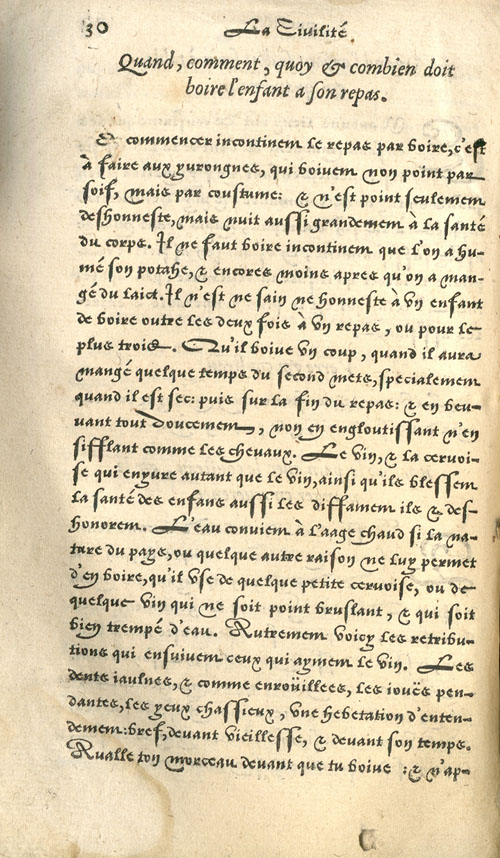 30 La Ciuilité.
Quand, comment, quoy & combien doit
boire l'enfant a son repas.
commencer incontinent le repas par boire, c'est
à faire aux yurongnes, qui boiuent non point par
soif, mais par coustume: & n'est point seulement
deshonneste, mais nuit aussi grandement à la santé
du corps. Il ne faut boire incontinent que l'on a hu-
mé son potage, & encores moins apres qu'on a man-
gé du laict. Il n'est ne sain ne honneste à vn enfant
de boire outre les deux fois à vn repas, ou pour le
plus trois. Qu'il boiue vn coup, quand il aura
mangé quelque temps du second mets, specialement
quand il est sec: puis sur la fin du repas: & en beu-
uant tout doucement, non en engloutissant n'en
sifflant comme les cheuaux. Le vin, & la ceruoi-
se qui enyure autant que le vin, ainsi qu'ils blessent
la santé des enfans aussi les diffament ils & des-
honorent. L'eau conuient à l'aage chaud si la na-
ture du pays, ou quelque autre raison ne luy permet
d'en boire, qu'il vse de quelque petite ceruoise, ou de
quelque vin qui ne soit point bruslant, & qui soit
bien trempé d'eau. Autrement voicy les retribu-
tions qui ensuiuent ceux qui ayment le vin. Les
dents iaulnes, & comme enroüillees, les iouës pen-
dantes, les yeux chassieux, vne hebetation d'enten-
dement: bref, deuant vieillesse, & deuant son temps.
Aualle ton morceau deuant que tu boiue : & n'ap-